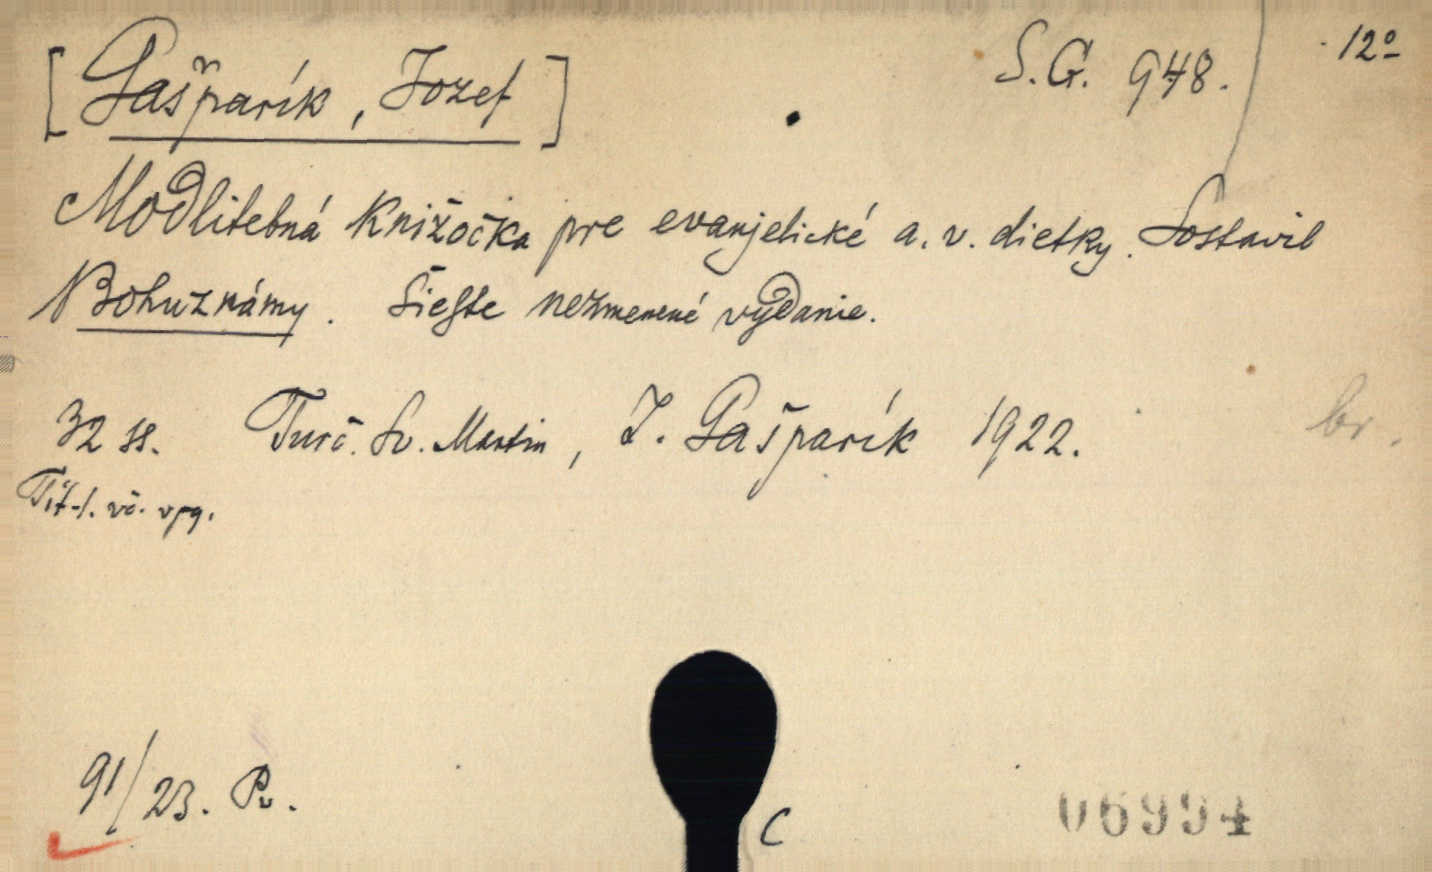 [Gašparík, Jozef] S.G. 948. 12º
Modlitebná knižočka pre evanjelické a. v. dietky. Sostavil
Bohuznámy. Šieste nezmenené vydanie.
32 ss. Turč. Sv. Martin, J. Gašparík 1922. br.
Tit. l. vč. vpg.
91/23. Pv.
C
06994